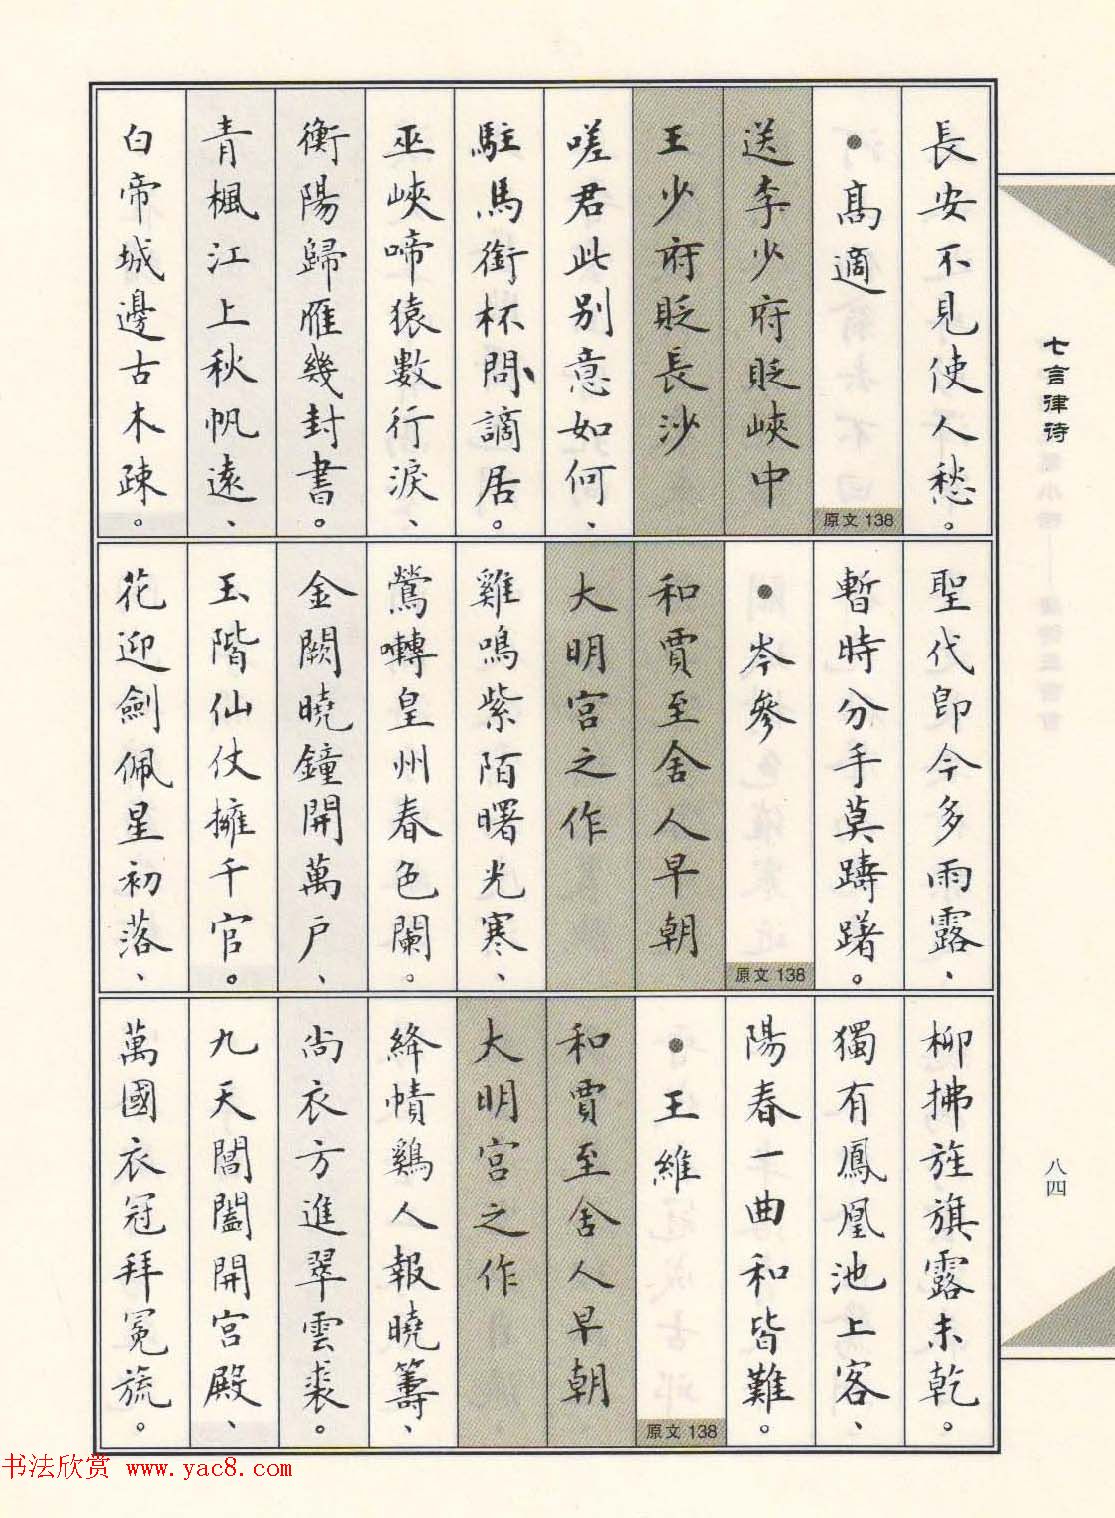 長安不見使人愁。
●高適
原文138
送李少府貶峽中
王少府貶長沙
嗟君此別意如何、
駐馬銜杯問謫居。
巫峽啼猿數行淚、
衡陽歸雁幾封書。
青楓江上秋帆遠、
白帝城邊古木疎。
聖代即今多雨露、
暫時分手莫躊躇。
●岑參
原文138
和賈至舍人早朝
大明宮之作
雞鳴紫陌曙光寒、
鶯囀皇州春色闌。
金闕曉鐘開萬戶、
玉階仙仗擁千官。
花迎劍佩星初落、
柳拂旌旗露未乾。
獨有鳳凰池上客、
陽春一曲和皆難。
●王維
原文138
和賈至舍人早朝
大明宮之作
絳幘鷄人報曉籌、
尚衣方進翠雲裘。
九天閶闔開宮殿、
萬國衣冠拜冕旒。
七言律诗
八四
书法欣赏 www.yac8.com